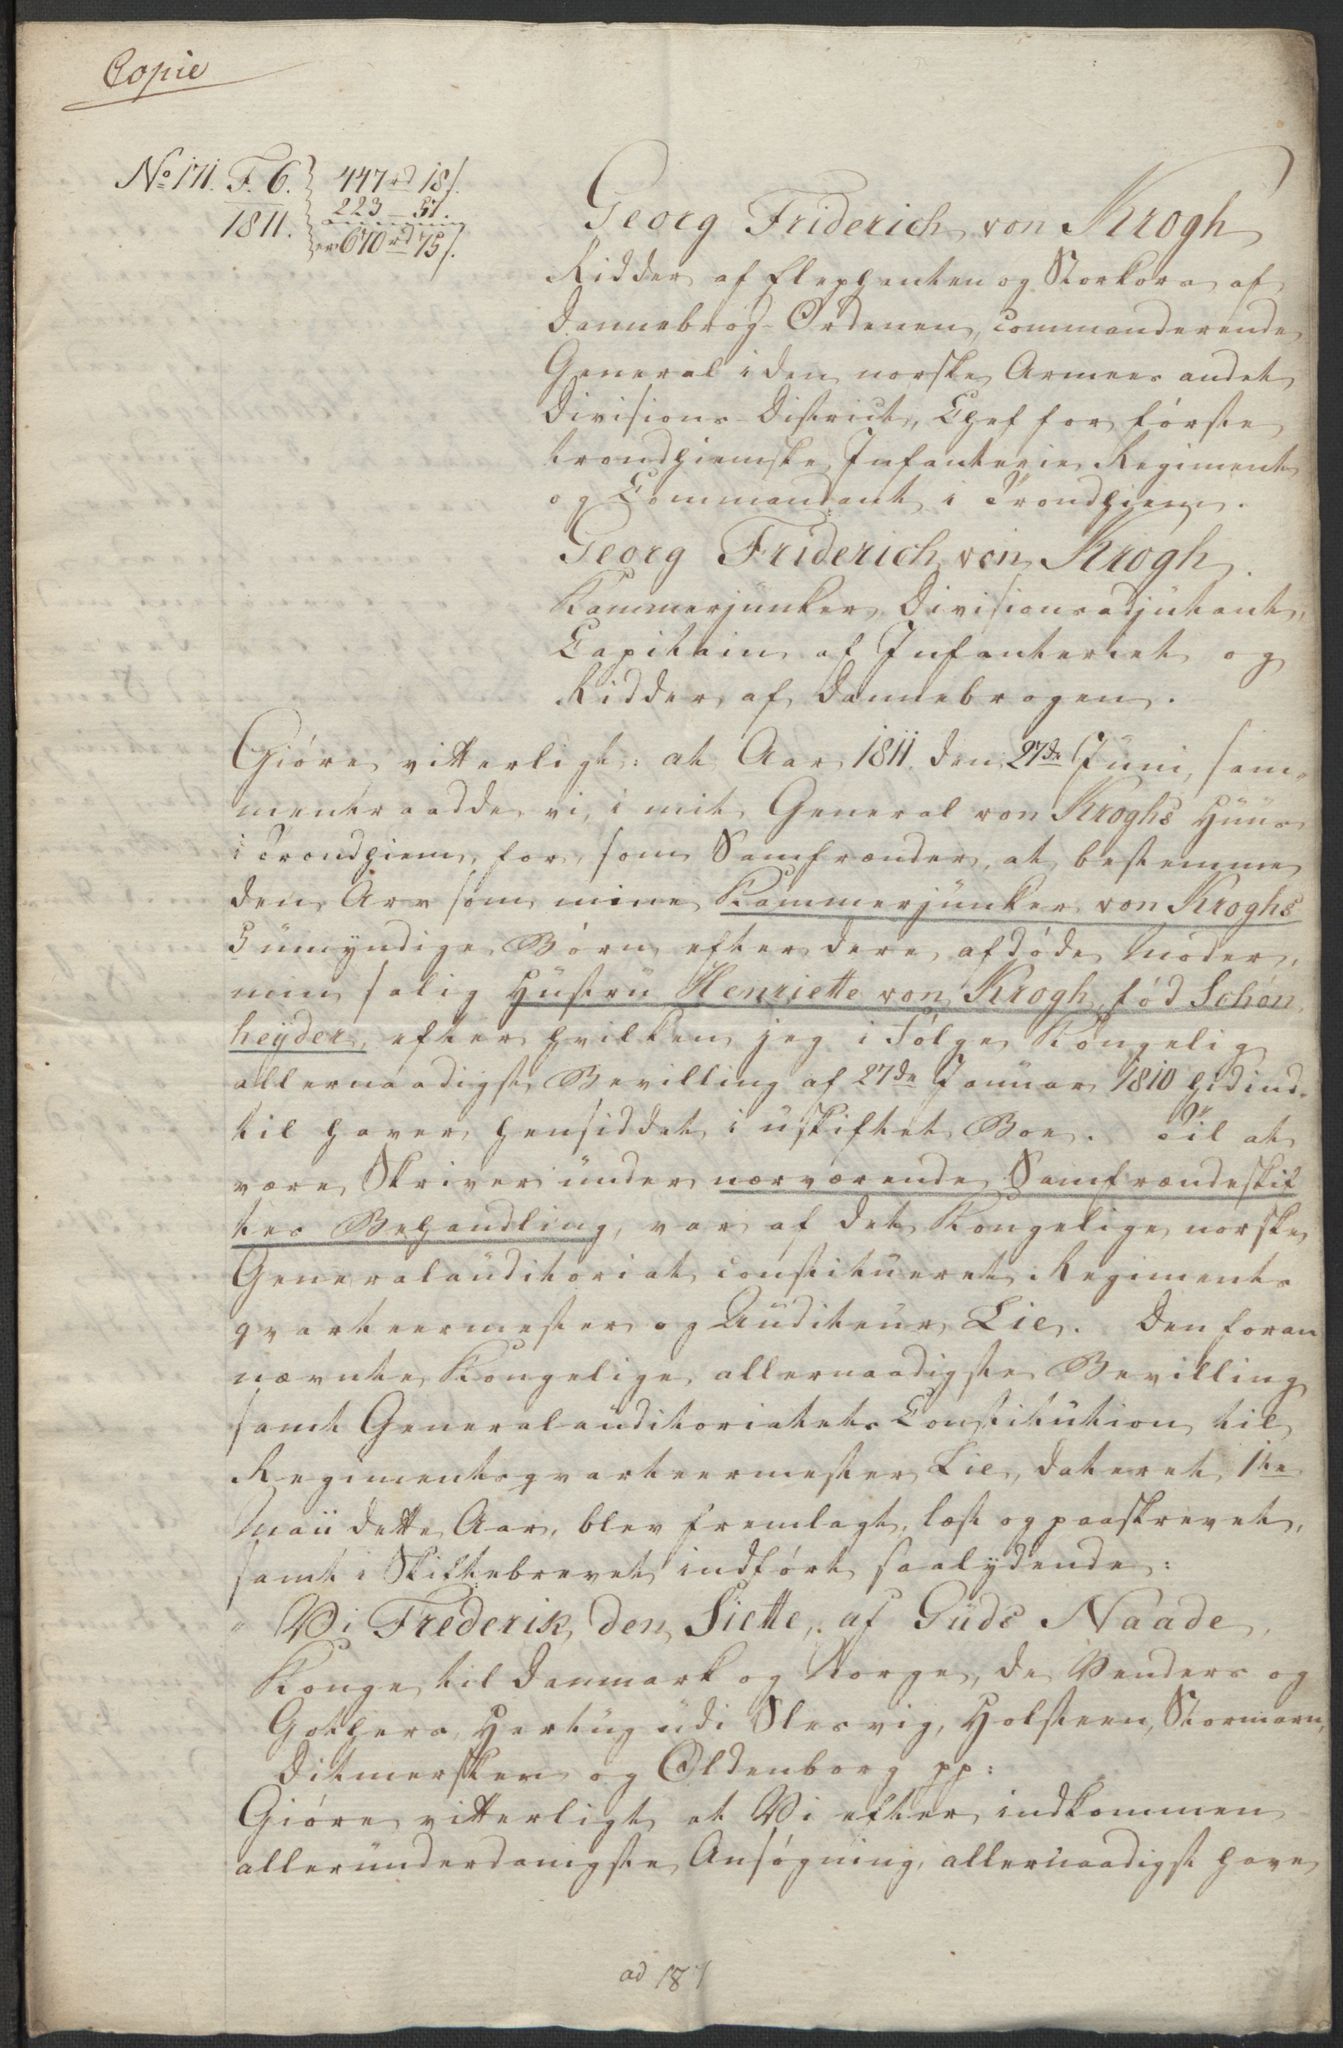 Copie
No 171. F. 6. 447rd 18s.
1811. 223 – 57.
er 670rd 75s.
Georg Friderich von Krogh
Ridder af Elephanten og Storkors af
Dannebrog-Ordenen, commanderende
General i den norske Armees andet
Divisions-District, Chef for første
trondhiemske Infanterie Regiment
og Commandant i Trondhiem.
Georg Friderich von Krogh
Kammerjunker, Divisionsadjutant,
Capitain af Infanteriet og
Ridder af Dannebrogen.
Giøre vitterligt: at Aar 1811. den 27de Juni, sam-
mentraadde vi, i mit General von Kroghs Huus
i Trondhiem, for, som Samfrænder, at bestemme
den Arv som mine Kammerjunker von Kroghs
5 umyndige Børn efter deres afdøde Moder,
min salig Hustru Henriette von Krogh, fød Schøn
heyder, efter hvilken jeg i Følge Kongelig
allernaadigst Bevilling af 27de Januar 1810 hidind-
til haver hensiddet i uskiftet Boe. Til at
være Skriver under nærværende Samfrændeskif
tes Behandling, var af det Kongelige norske
Generalauditoriat constitueret Regiments
qvarteermester og Auditeur Lie. Den foran
nævnte Kongelige allernaadigste Bevilling
samt Generalauditoriatets Constitution til
Regimentsqvarteermester Lie, dateret 1te
Maii dette Aar, blev fremlagt, læst og paaskrevet,
samt i Skiftebrevet indført saalydende:
" Vi Frederik den Siette, af Guds Naade,
Konge til Danmark og Norge, de Venders og
Gothers, Hertug udi Slesvig, Holsteen, Stormarn,
Ditmersken og Oldenborg pp:
Giøre vitterligt at Vi efter indkommen
allerunderdanigste Ansøgning, allernaadigst have
ad 187